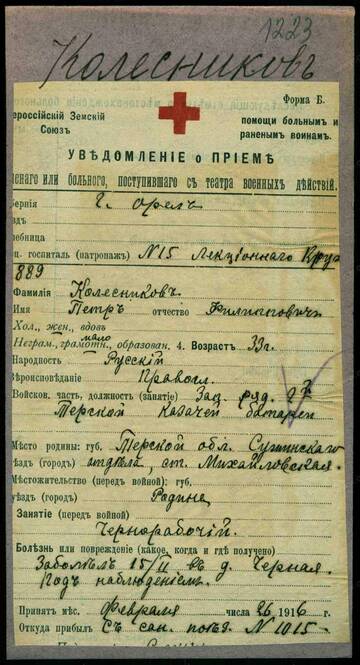 1223
Колесниковъ
Форма Б.
ероссійскій Земскій
Союзъ
помощи больнымъ и
раненымъ воинамъ.
УВѢДОМЛЕНІЕ о ПРІЕМѢ
енаго или больного, поступившаго съ театра военныхъ дѣйствій.
бернія г. Орелъ
здъ
чебница
ц. госпиталь (патронажъ) № 15 Лекціоннаго
889
Фамилія Колесниковъ
Имя Петръ отчество Филипповичъ
Хол., жен., вдовъ
мало
Неграм., грамотн., образован. 4. Возрастъ 33 г.
Народность Русскій
Вѣроисповѣданіе Правосл.
Войсков. часть, должность (занятіе) Зап. ряд. 2й
Терской казачей батареи
Мѣсто родины: губ. Терской обл. Сунжинскаго
уѣздъ (город) отдѣла, ст. Михайловская.
Мѣстожительство (передъ войной): губ.
уѣздъ (городъ) Родина
Занятіе (передъ войной)
Чернорабочій.
Болѣзнь или поврежденіе (какое, когда и гдѣ получено)
Заболѣлъ 15/II въ д. Черная.
Подъ наблюденіемъ.
Принятъ мѣс. Февраля числа 26 1916 г.
Откуда прибылъ Съ сан. поѣзд. № 1015.